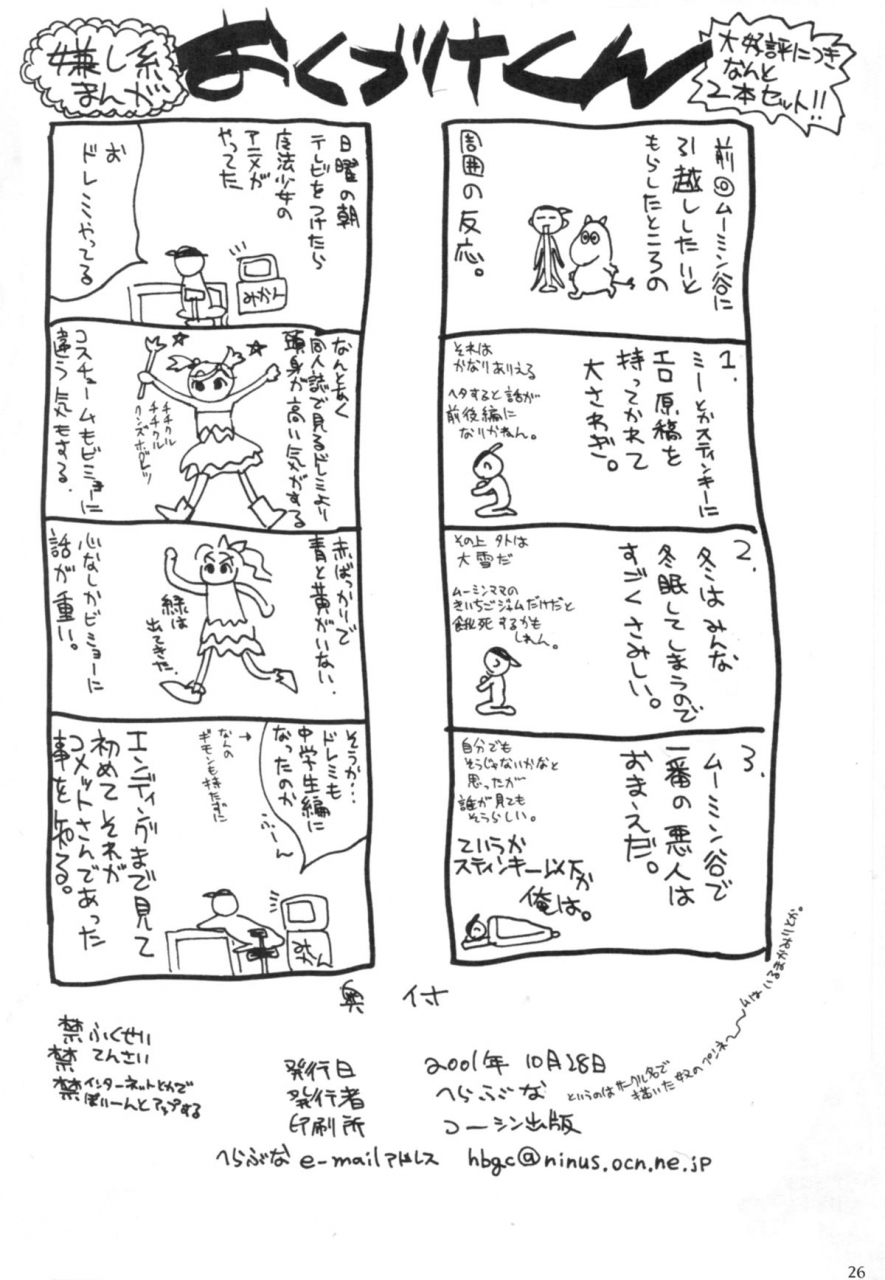 嫌し系
まんが
おくづけくん
大好評につき
なんと
2本セット!!
前回ムーミン谷に
引越ししたいと
もらしたところの
周囲の反応。
1.
ミーとかスティンキーに
エロ原稿を
持ってかれて
大さわぎ。
それは
かなりありえる
ヘタすると話が
前後編に
なりかねん。
2.
冬はみんな
冬眠してしまうので
すごくさみしい。
その上外は
大雪だ
ムーミンママの
きいちごジャムだけだと
餓死するかも
しれん。
3.
ムーミン谷で
一番の悪人は
おまえだ。
自分でも
そうじゃないかなと
思ったが
誰が見ても
そうらしい。
ていうか
スティンキー以下か
俺は。
日曜の朝
テレビをつけたら
魔法少女の
アニメが
やってた
お
ドレミやってる
みかん
なんとなく
同人誌で見るドレミより
頭身が高い気がする
チチクル
チチクル
コスチュームもビミョーに
違う気もする.
赤ばっかりで
青と黄がいない.
緑は
出てきた.
心なしかビミョーに
話が重い。
そうか…
ドレミも
中学生編に
なったのか
ふーん
→
なんの
ギモンも持たずに
エンディングまで見て
初めてそれが
コメットさんであった
事を知る。
みかん
奥付
禁ふくせい
禁てんさい
禁インターネットとかで
ぽいーんとアップする
発行日 2001年10月28日
発行者 へらぶな
というのはサークル名で
描いた奴のペンネームはいるまかみりとか。
印刷所 コーシン出版
へらぶな e-mailアドレス hbgc@ninus.ocn.ne.jp
26